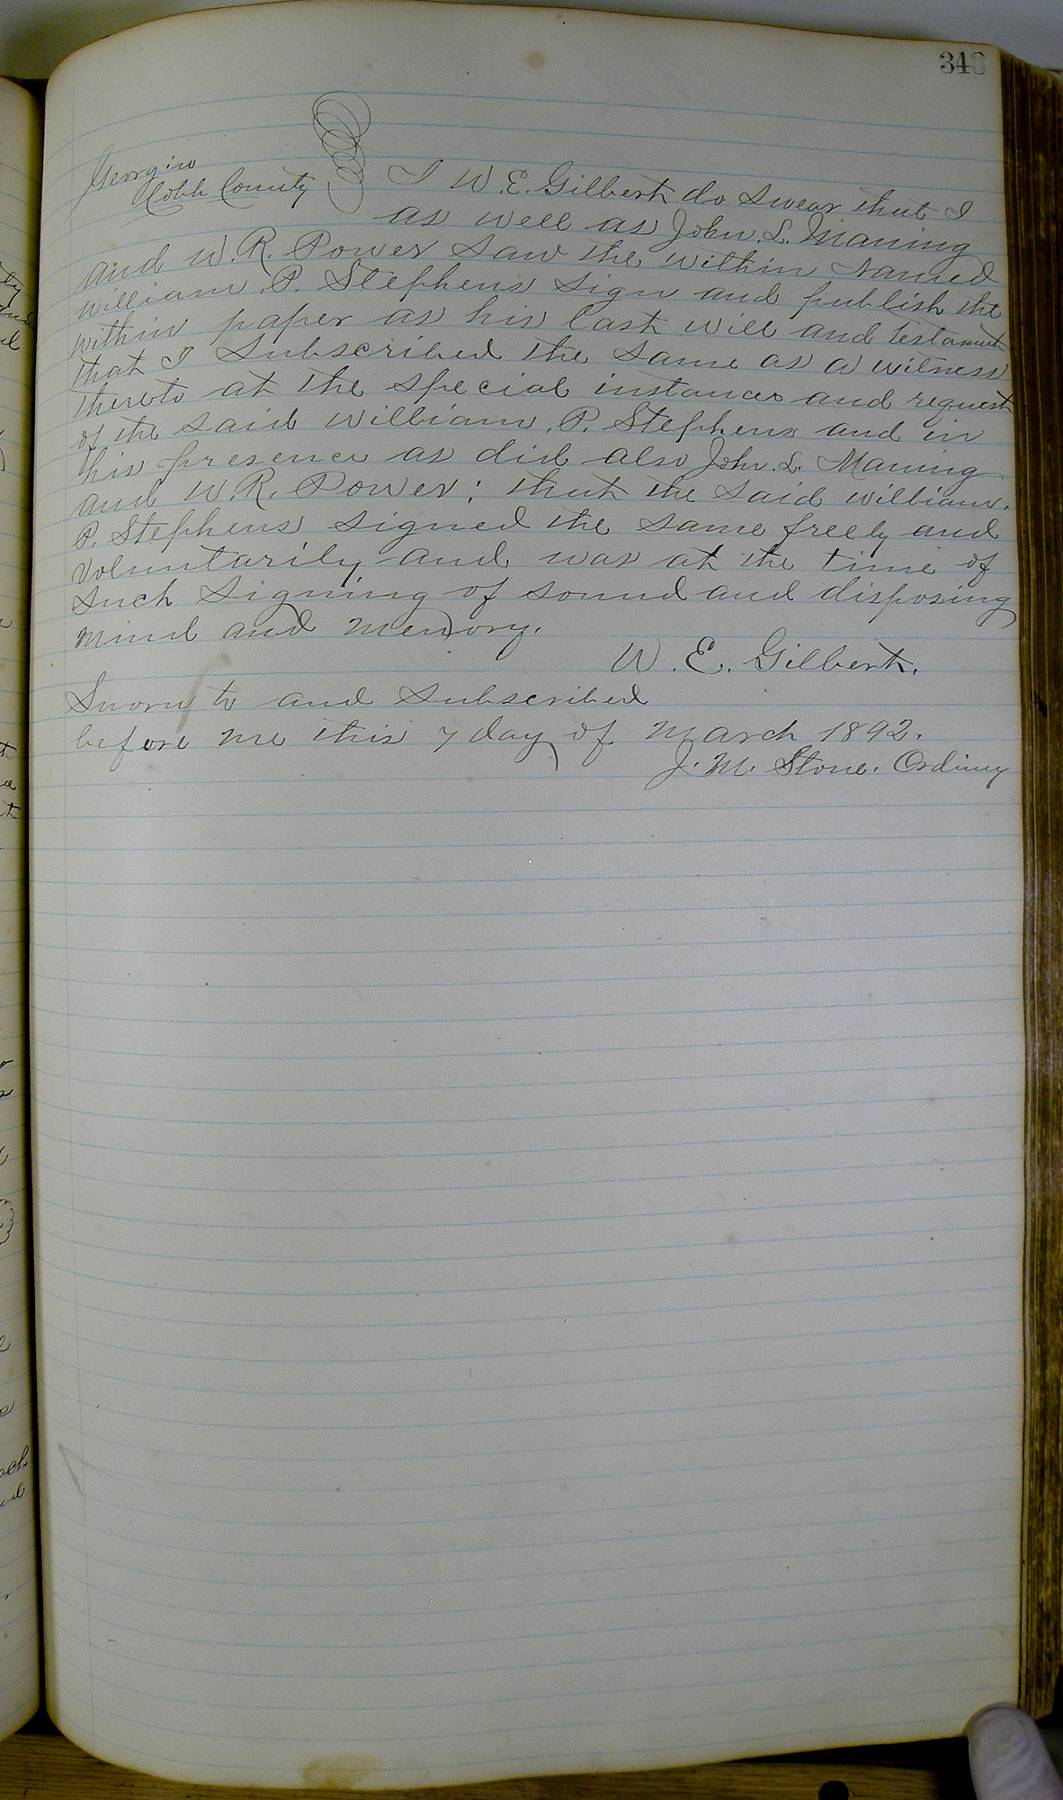 343
Georgia
Cobb County
I W. E. Gilbert do swear that I
as well as John. L. Maning
and W. R. Power saw the within named
William. P. Stephens sign and publish the
within paper as his last will and testament
that I subscribed the same as a witness
thereto at the special instances and request
of the said William. P. Stephens and in
his presence as did also John. L. Maning
and W. R. Power; that the said William.
P. Stephens signed the same freely and
voluntarily and was at the time of
such signing of sound and disposing
mind and memory.
W. E. Gilbert.
Sworn to and subscribed
before me this 7 day of March 1892.
J. M. Stone. Ordinary